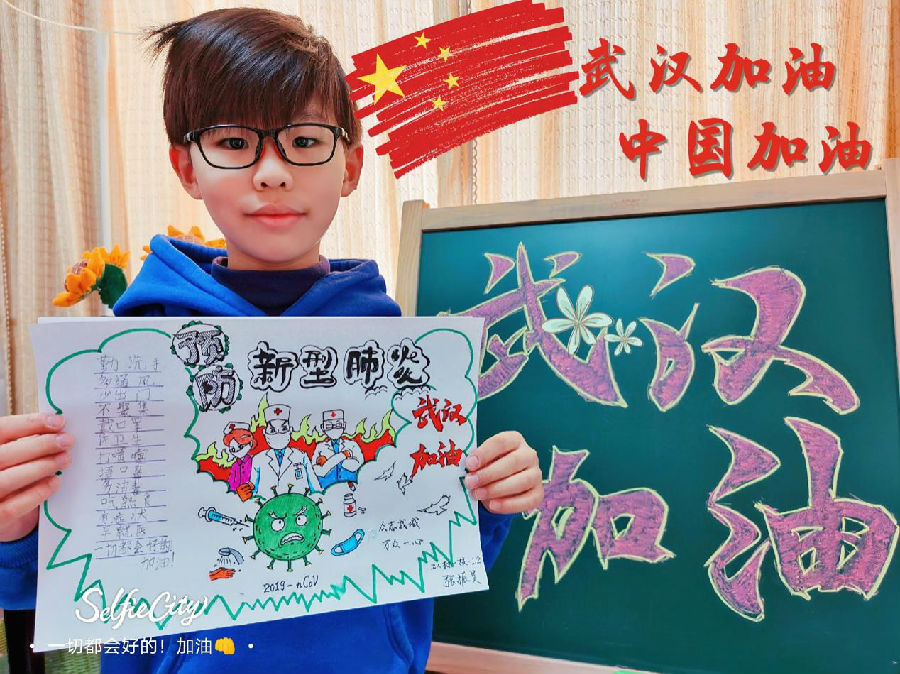 武汉加油
中国加油
武汉
加油
预防
新型肺炎
勤洗手
多通风
少出门
不聚集
戴口罩
讲卫生
打喷嚏
捂口鼻
多消毒
吃熟食
早就医
一切都会好的
加油!
武汉
加油
众志成城
万众一心
2019-nCoV
SelfieCity
• 一切都会好的！加油👊 •